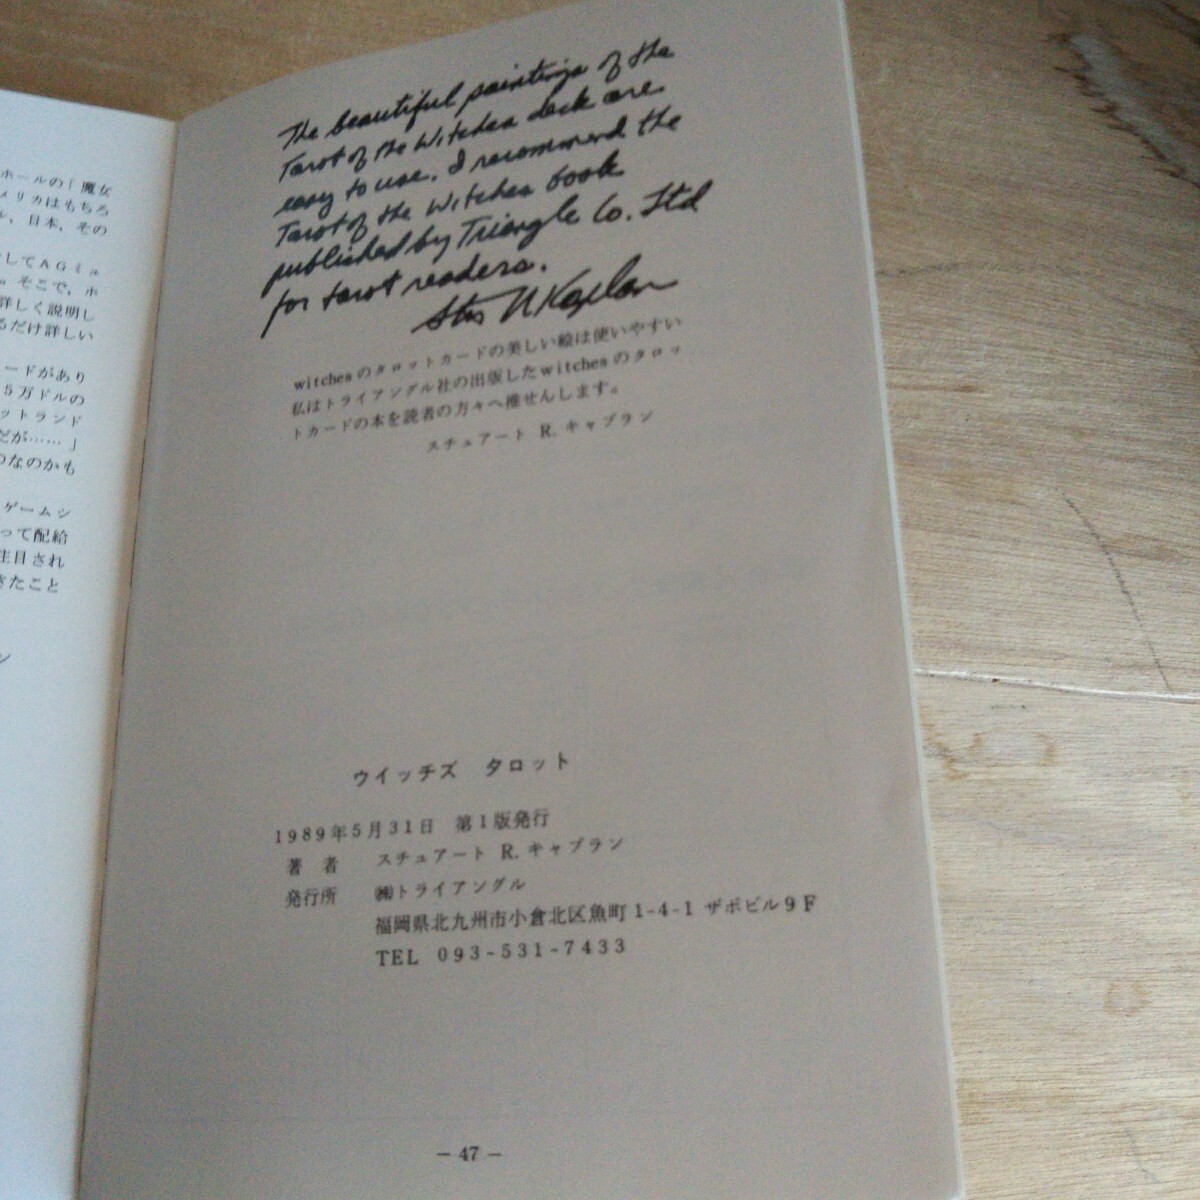 ホールの「魔女
メリカはもちろ
ル、日本、その
してAGミュ
。そこで、ホ
詳しく説明し
るだけ詳しい
ードがあり
5万ドルの
ットランド
だが……」
のなのかも
ゲームシ
って配給
注目され
きたこと
ン
The beautiful paintings of the
Tarot of the Witches deck are
easy to use. I recommend the
Tarot of the Witches book
published by Triangle Co. Ltd
for tarot readers.
Kaplan
witchesのタロットカードの美しい絵は使いやすい
私はトライアングル社の出版したwitchesのタロッ
トカードの本を読者の方々へ推せんします。
スチュアート R. キャプラン
ウイッチズ タロット
1989年5月31日 第1版発行
著 者 スチュアート R. キャプラン
発行所 ㈱トライアングル
福岡県北九州市小倉北区魚町1-4-1 ザボビル9F
TEL 093-531-7433
— 47 —